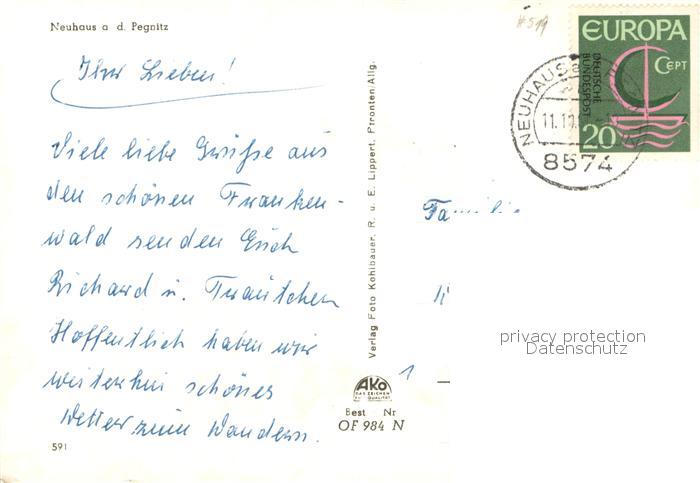 Neuhaus a d. Pegnitz
#519
Ihr Lieben!
Viele liebe Grüße aus
den schönen Franken-
wald senden Euch
Richard u. Trautchen
Hoffentlich haben wir
weiterhin schönes
Wetter zum Wandern.
591
Verlag Foto Kohlbauer. R. u. E. Lippert. Pfronten/Allg.
AKO
DAS ZEICHEN
FÜR QUALITÄT
Best Nr
OF 984 N
1
EUROPA
CEPT
DEUTSCHE
BUNDESPOST
20
NEUHAUS
11.10.
8574
Familie
privacy protection
Datenschutz